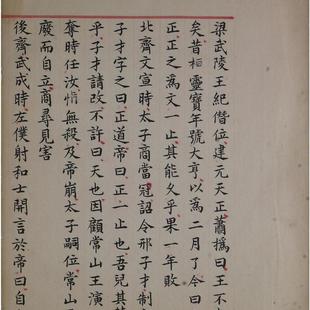 梁武陵王紀僭位建元天正蕭撝曰王不
矣昔桓靈寶年號大亨以為二月了今曰
正正之為文一止其能久乎果一年敗
北齊文宣時太子商當冠詔令邢子才制
子才字之曰正道帝曰正一止也吾兒其
乎子才請改不許曰天也因顧常山王演
奪時任汝惰無殺及帝崩太子嗣位常山
廢而自立商尋見害
後齊武成時左僕射和士開言於帝曰自